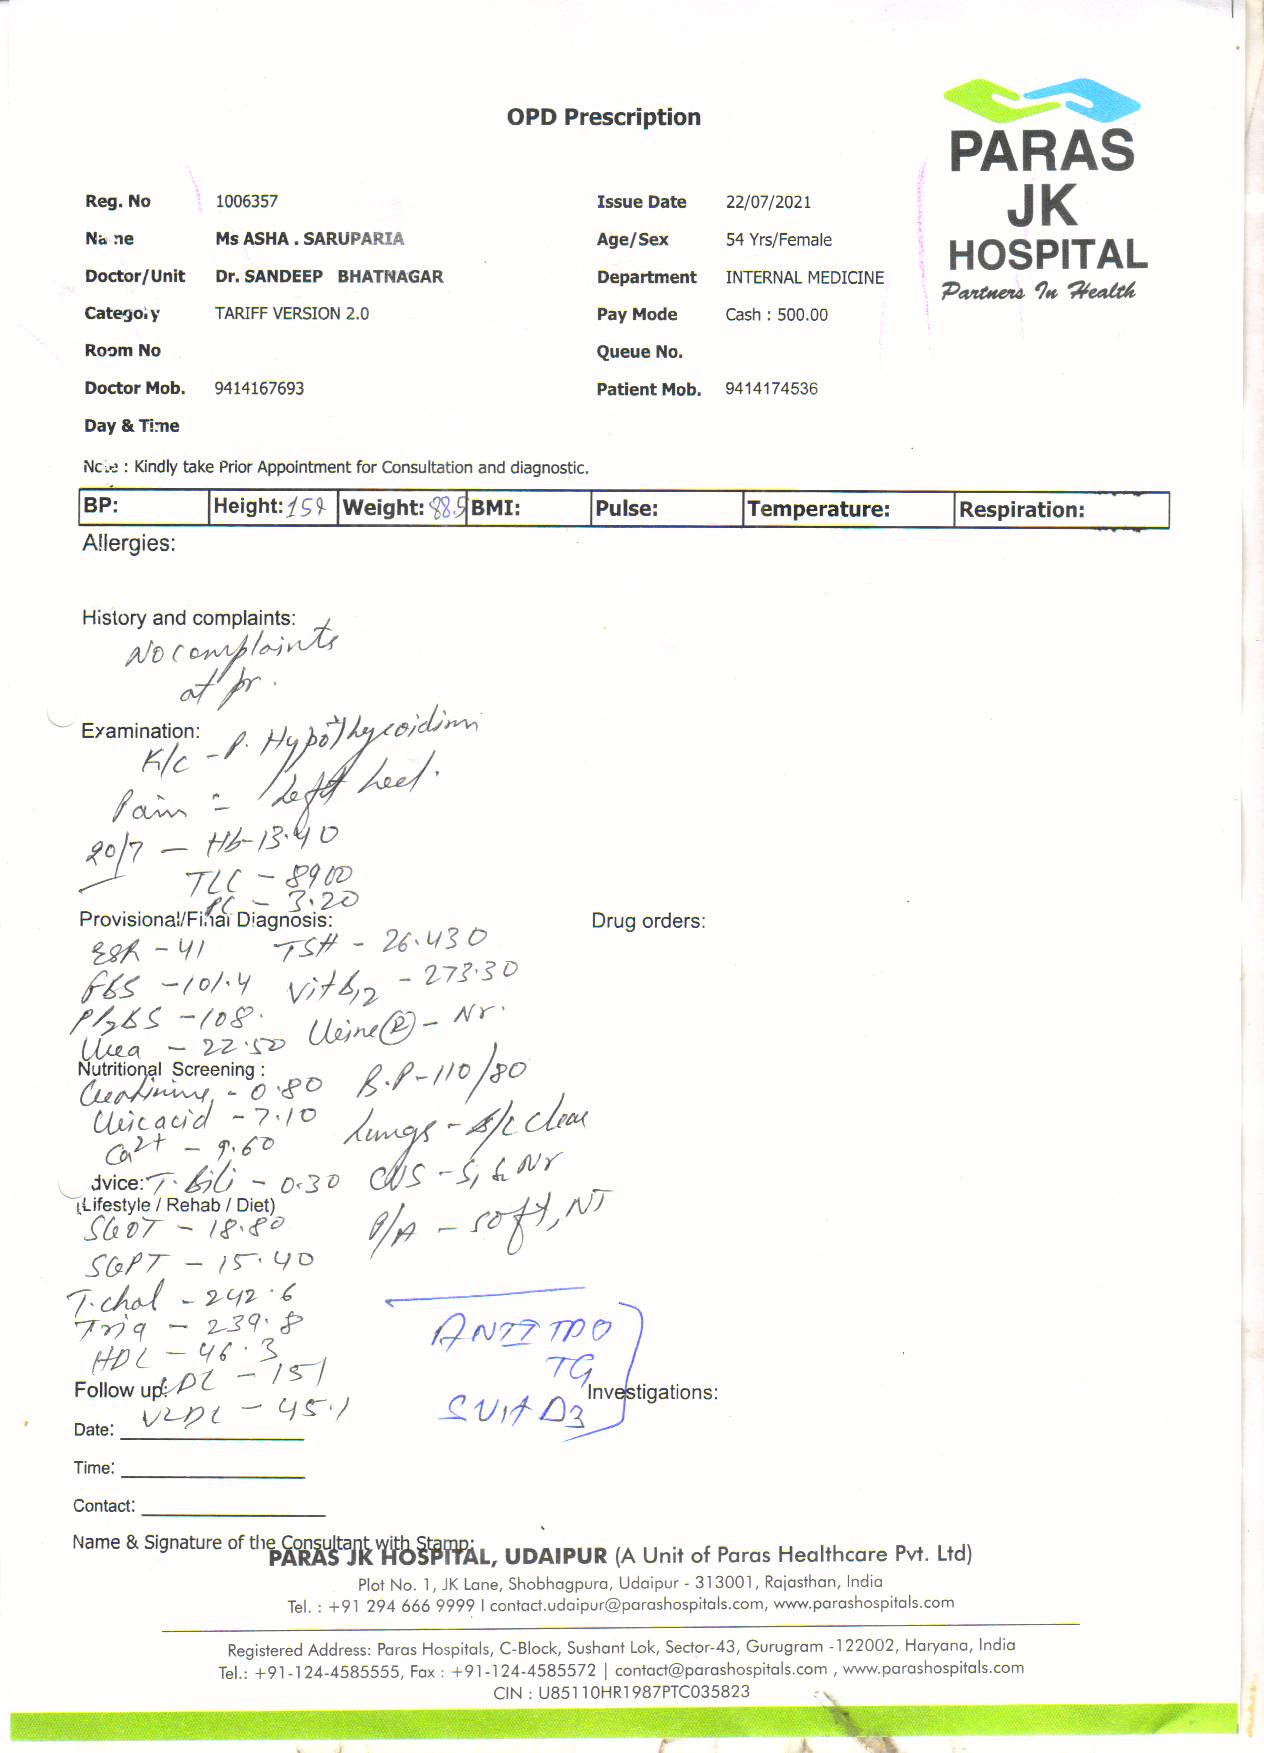 OPD Prescription
PARAS
JK
HOSPITAL
Partners In Health
Reg. No 1006357 Issue Date 22/07/2021
Name Ms ASHA . SARUPARIA Age/Sex 54 Yrs/Female
Doctor/Unit Dr. SANDEEP BHATNAGAR Department INTERNAL MEDICINE
Category TARIFF VERSION 2.0 Pay Mode Cash : 500.00
Room No Queue No.
Doctor Mob. 9414167693 Patient Mob. 9414174536
Day & Time
Note : Kindly take Prior Appointment for Consultation and diagnostic.
BP: Height: 159 Weight: 88.5 BMI: Pulse: Temperature: Respiration:
Allergies:
History and complaints:
No complaints
at pr.
Examination:
K/c - P. Hypothyroidism
Pain - Left heel.
20/7 - Hb - 13.40
TLC - 8900
PC - 3.20
Provisional/Final Diagnosis: Drug orders:
ESR - 41 TSH - 26.430
FBS - 101.4 Vit B12 - 273.30
P/2BS - 108. Urine (R) - Nr.
Urea - 22.50
Nutritional Screening :
Creatinine - 0.80 B.P - 110/80
Uric acid - 7.10 Lungs - B/L clear
Ca2+ - 9.60
dvice: T. Bili - 0.30 CVS - S1 S2 Nr
(Lifestyle / Rehab / Diet)
SGOT - 18.80 P/A - soft, NT
SGPT - 15.40
T. chol - 242.6
Trig - 239.8 ANTI TPO
HDL - 46.3 TG
Follow up: LDL - 151 Investigations:
VLDL - 45.1 S VIT D3
Date:
Time:
Contact:
Name & Signature of the Consultant with Stamp:
PARAS JK HOSPITAL, UDAIPUR (A Unit of Paras Healthcare Pvt. Ltd)
Plot No. 1, JK Lane, Shobhagpura, Udaipur - 313001, Rajasthan, India
Tel. : +91 294 666 9999 I contact.udaipur@parashospitals.com, www.parashospitals.com
Registered Address: Paras Hospitals, C-Block, Sushant Lok, Sector-43, Gurugram -122002, Haryana, India
Tel.: +91-124-4585555, Fax : +91-124-4585572 | contact@parashospitals.com , www.parashospitals.com
CIN : U85110HR1987PTC035823